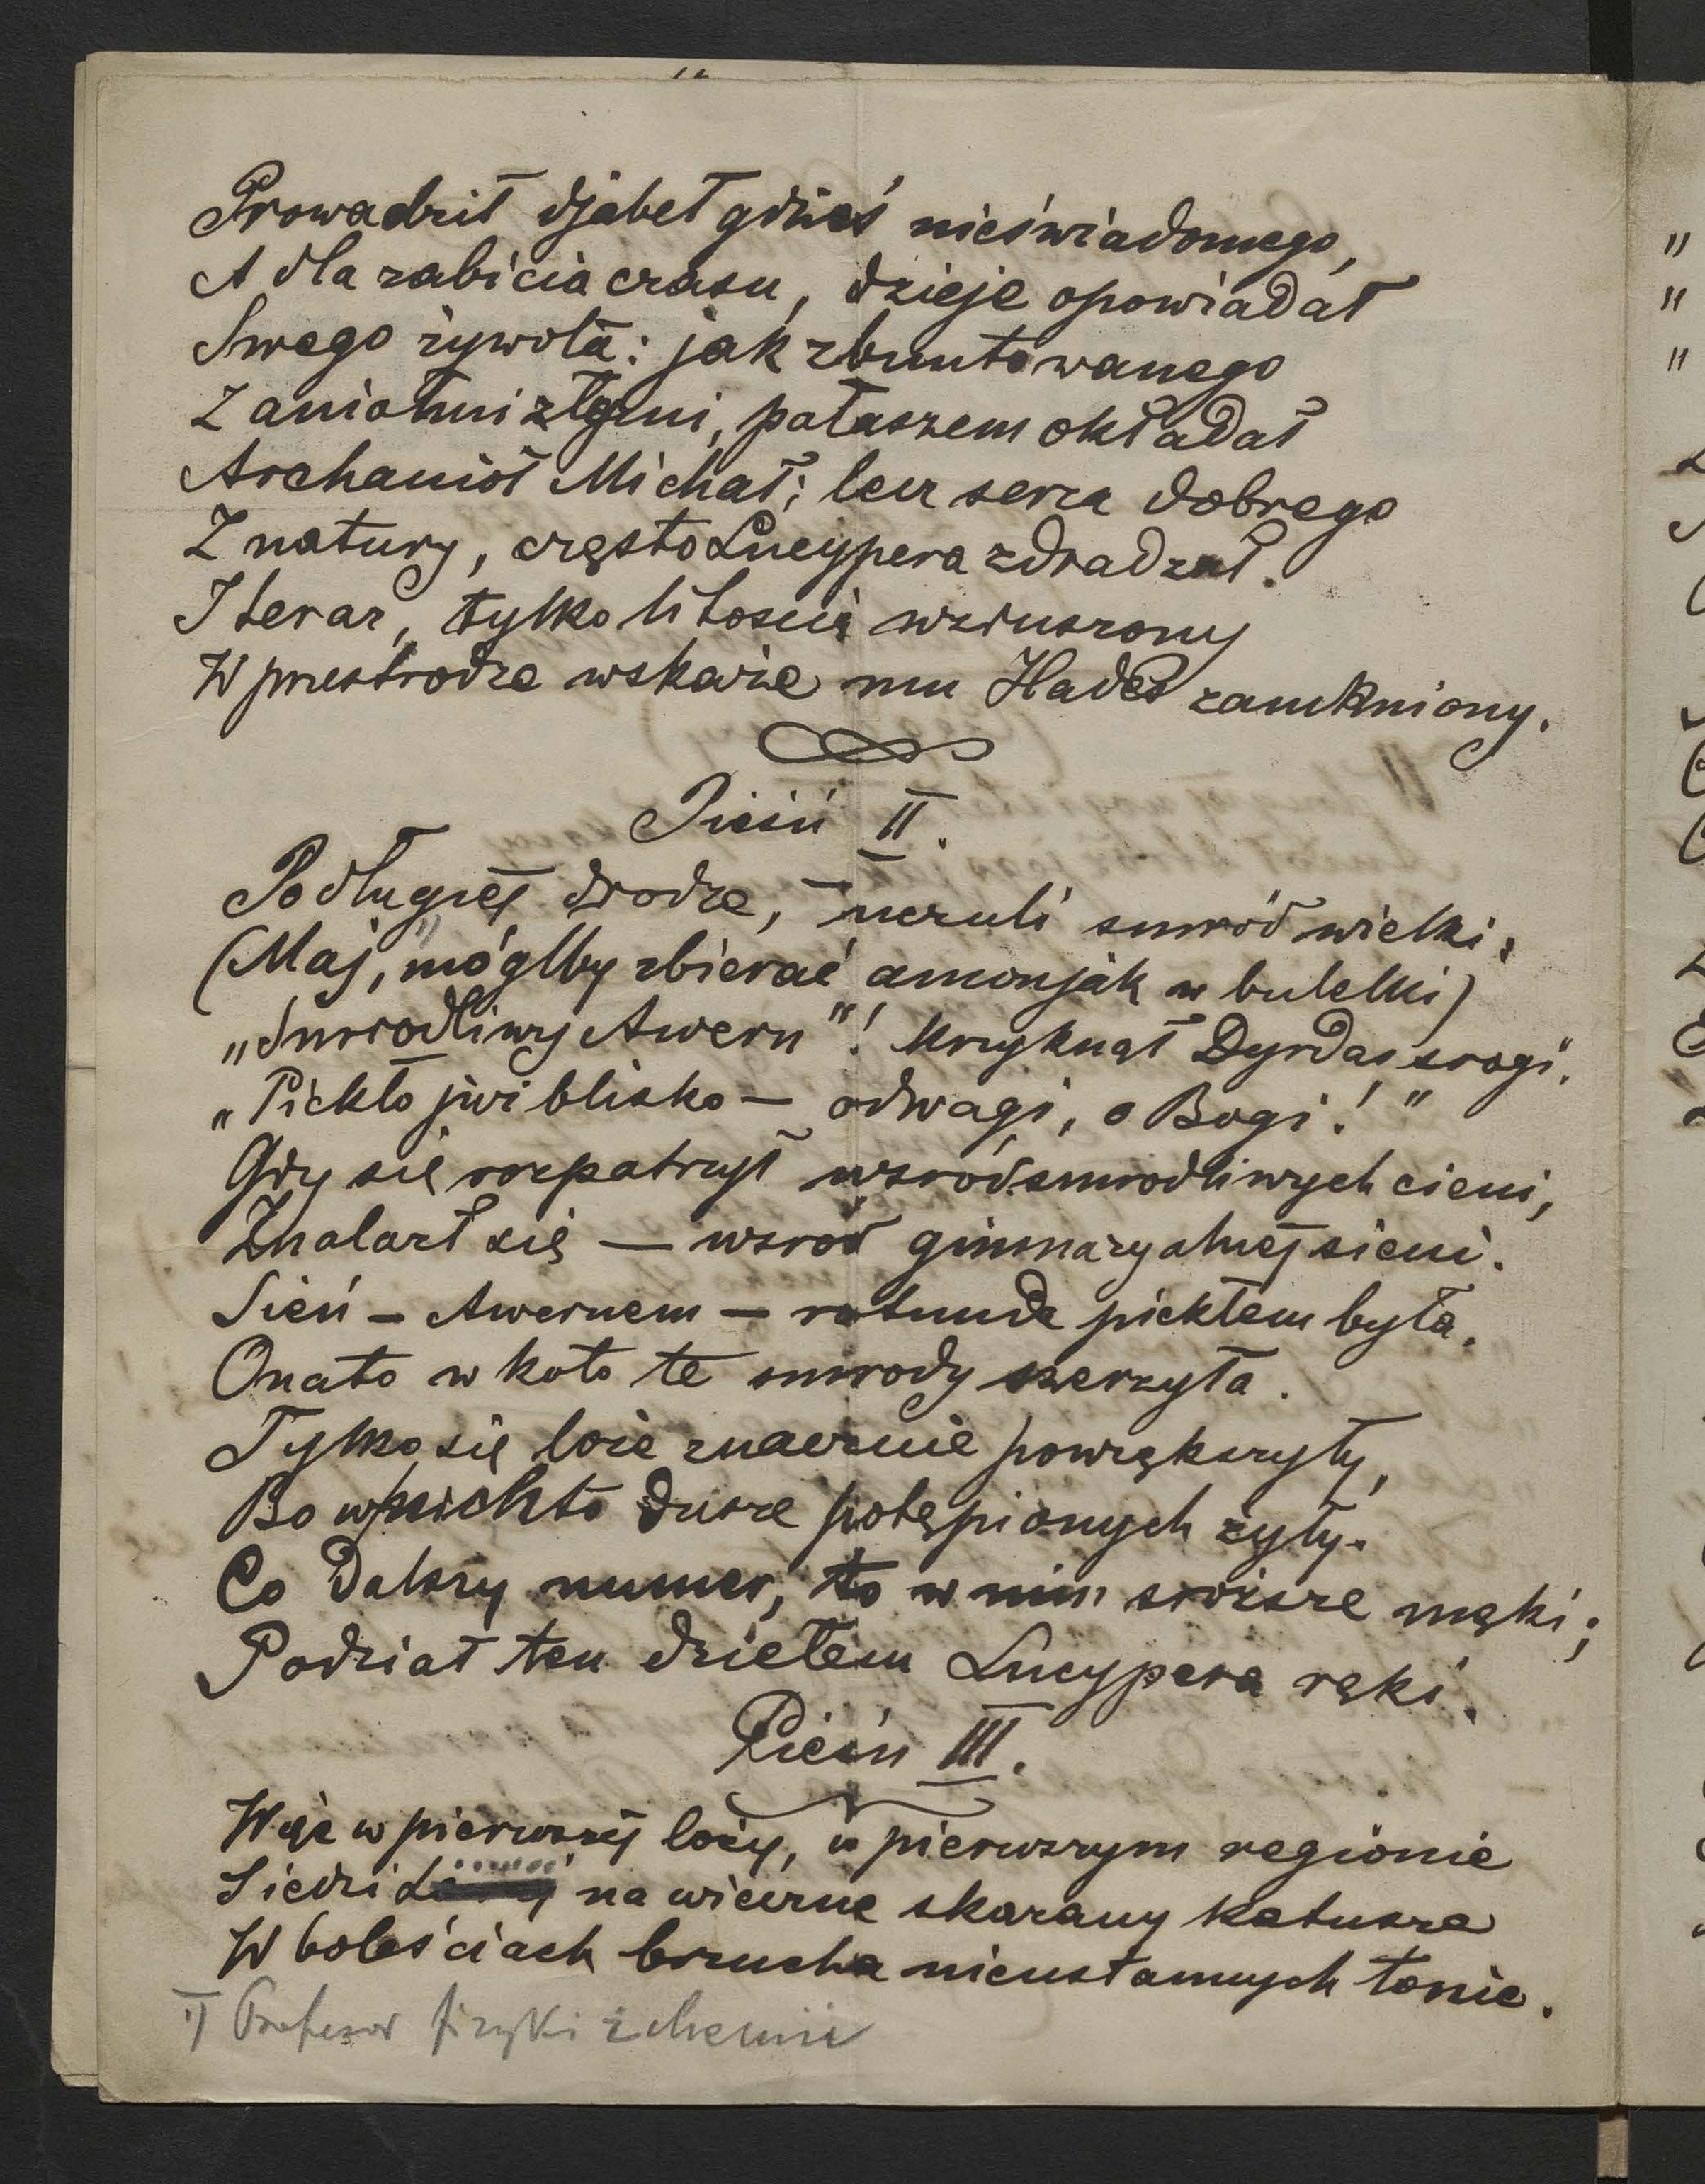 Prowadził djabeł gdzieś nieświadomego,
A dla zabicia czasu, dzieje opowiadał
Swego żywota: jak zbuntowanego
Z aniołmi złymi, pałaszem okładał
Archanioł Michał; lecz serca dobrego
Z natury, często Lucypera zdradzał.
I teraz, tylko litością wzruszony
W przestrodze wskaże mu Hades zamkniony.
Pieśń II.
Po długiej drodze, — uczuli smród wielki;
(Maj,¹⁾ mógłby zbierać amonjak w butelki)
„Smrodliwy Awern"! krzyknął Dyrdas srogi.
„Piekło już blisko — odwagi, o Bogi!"
Gdy się rozpatrzył wśród smrodliwych cieni,
Znalazł się — wsród gimnazyalnej sieni.
Sień – Awernem – rotunda piekłem była.
Onato w koło te smrody szerzyła.
Tylko się loże znacznie powiększyły,
Bo w nichto dusze potępionych żyły.
Co dalszy numer, to w nim sroższe męki;
Podział ten dziełem Lucypera ręki.
Pieśń III.
Więc w pierwszej loży, w pierwszym regionie
Siedzi na wieczne skarany katusze
W boleściach brzucha nieustannych tonie.
¹⁾ Profesor fizyki i chemii
„
„
„